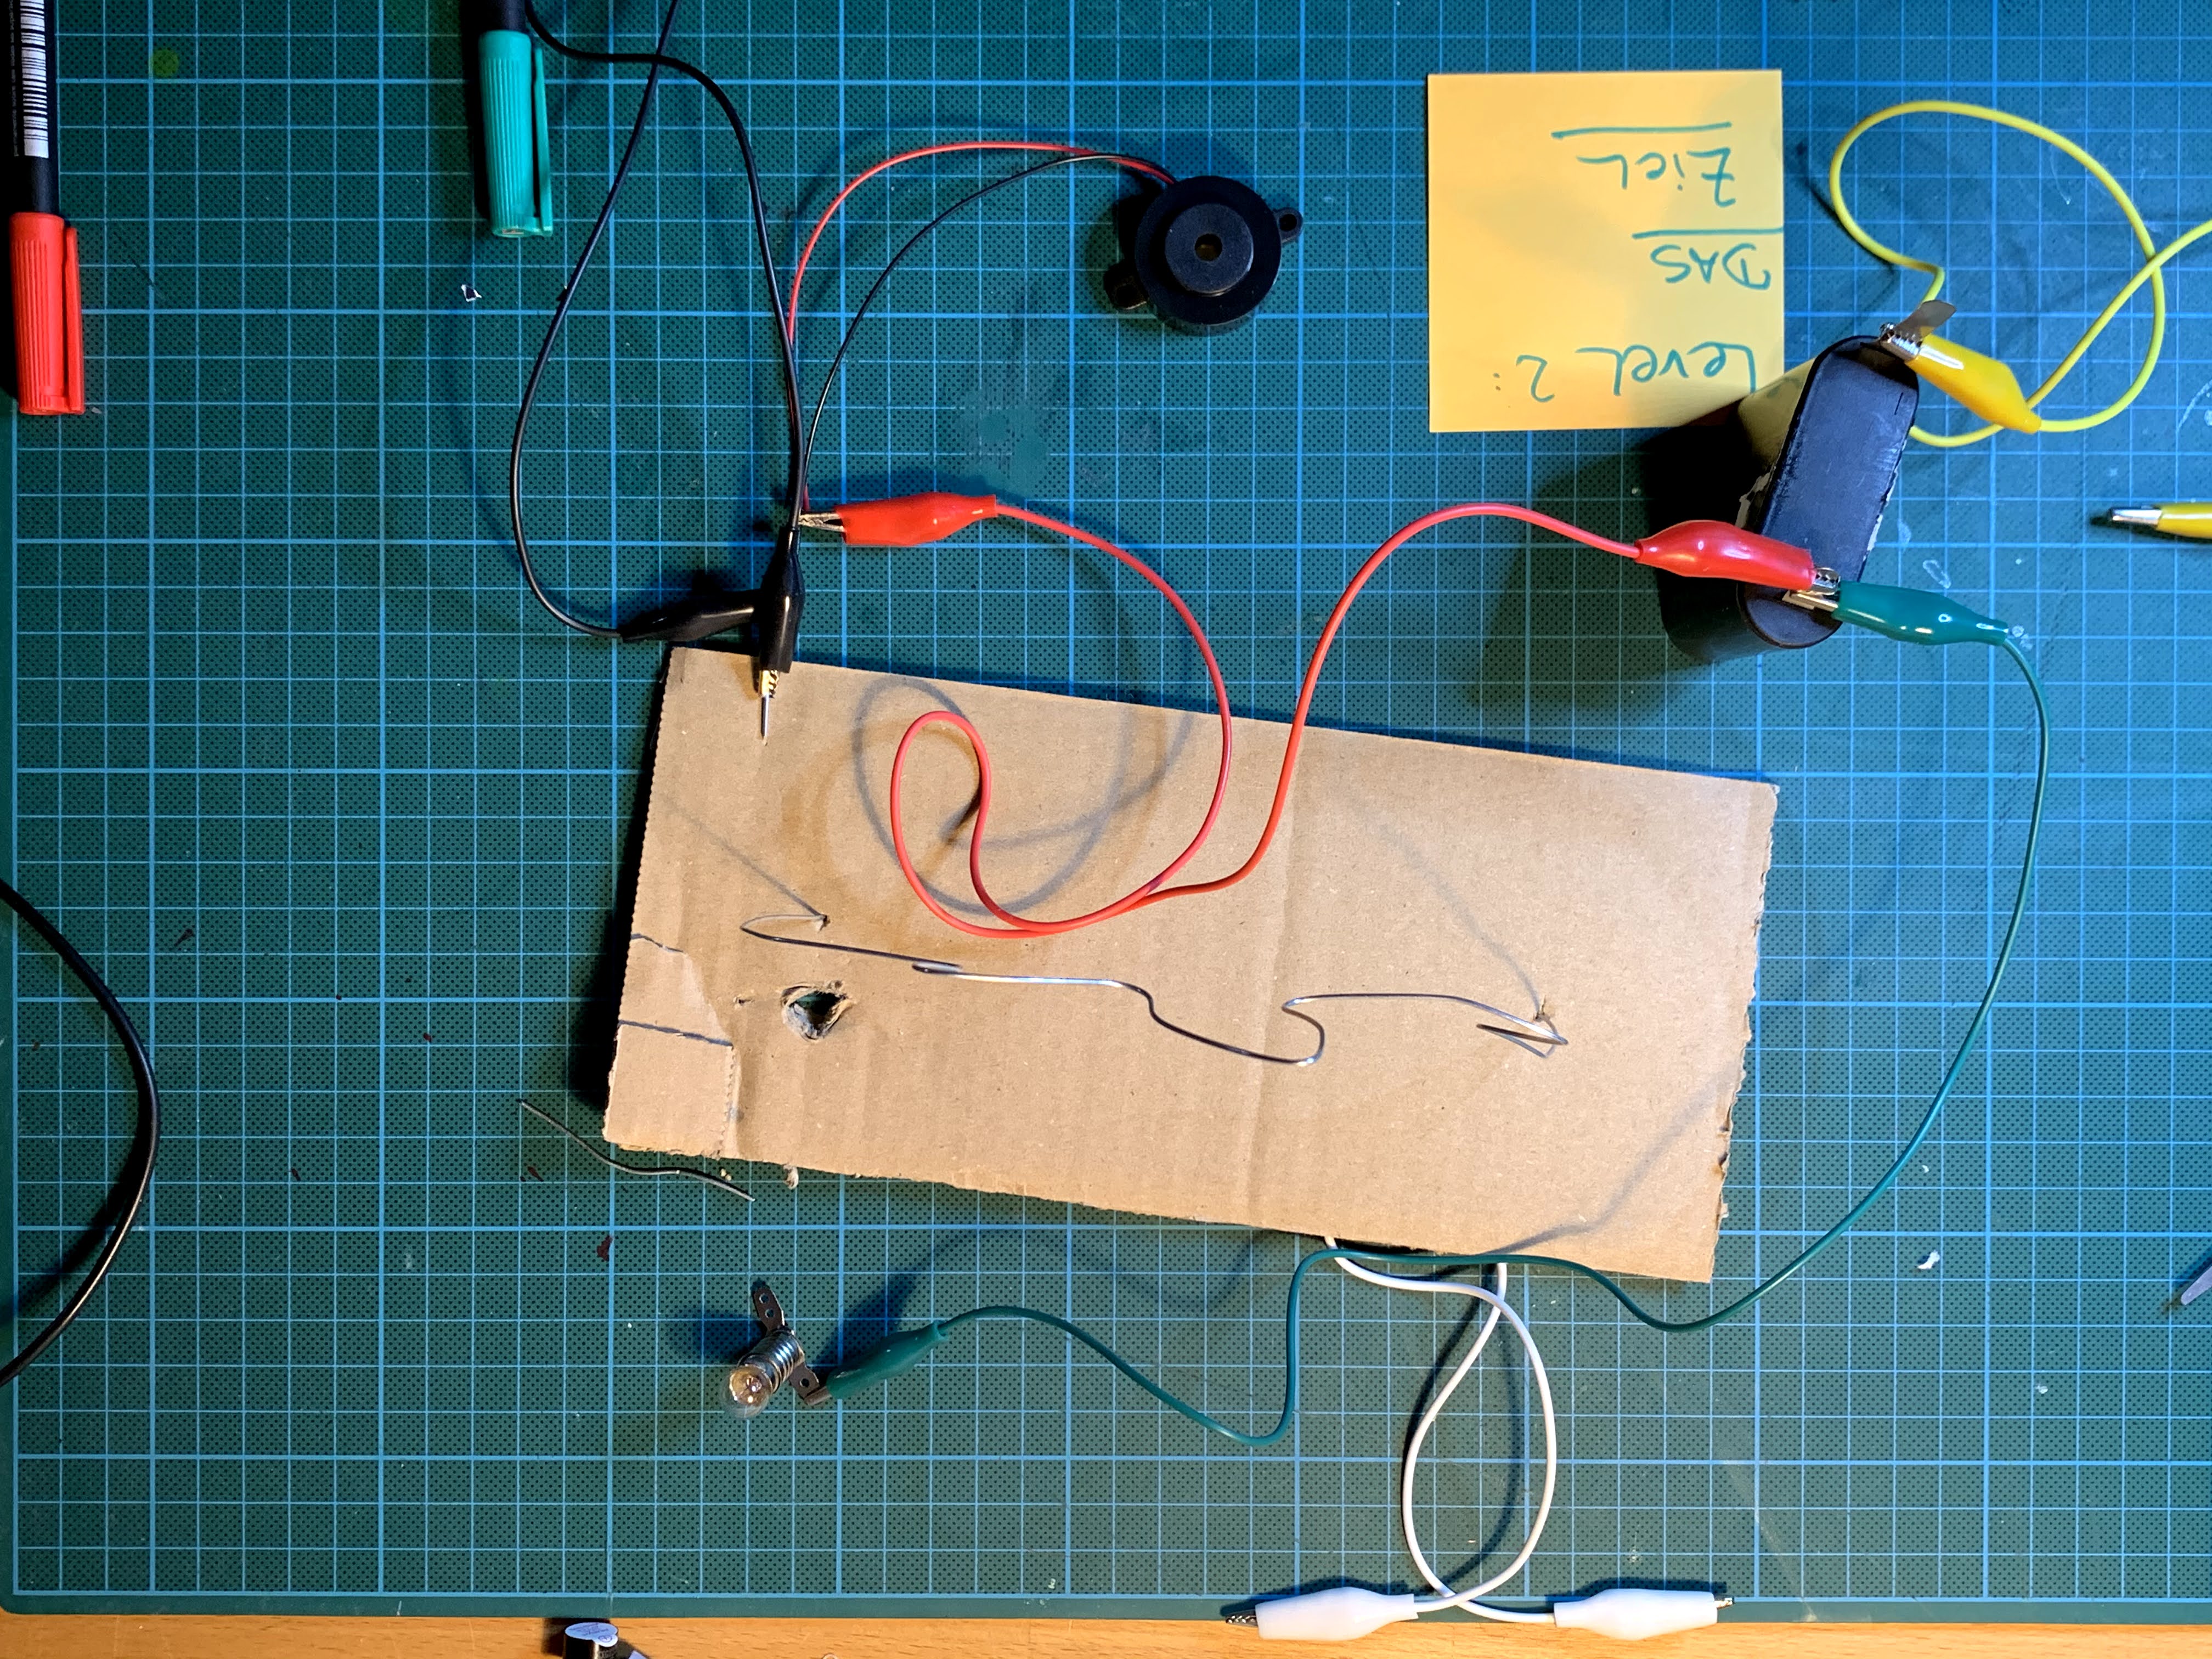 Level 2:
DAS
Ziel